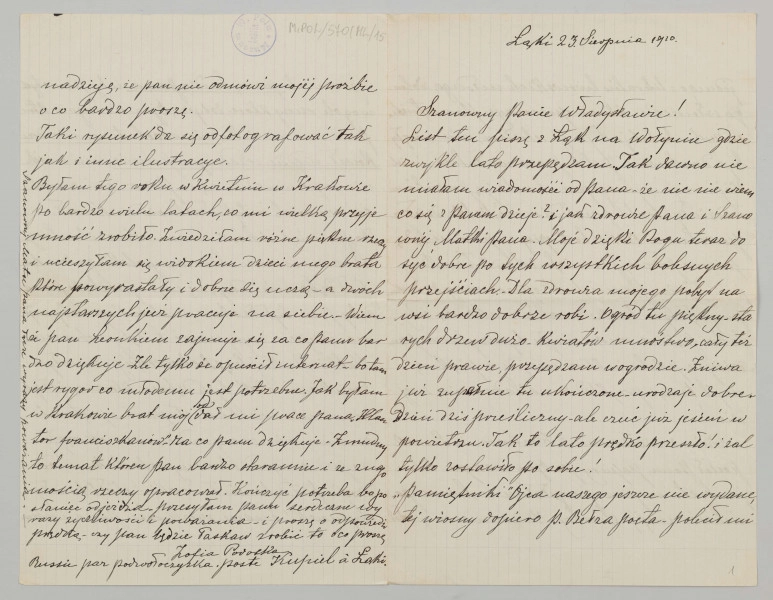 Łąki 23. Sierpnia 1910.
Szanowny Panie Władysławie!
List ten piszę z Łąk na Wołyniu gdzie
zwykle lato przepędzam. Tak dawno nie
miałam wiadomości od Pana – że nic nie wiem
co się z Panem dzieje? i jak zdrowie Pana i Szano
wnéj Matki Pana. Moje dzięki Bogu teraz do
syć dobre po tych wszystkich bolesnych
przejściach. Dla zdrowia mojego pobyt na
wsi bardzo dobrze robi. Ogród tu piękny – sta
rych drzew dużo. Kwiatów mnóstwo, cały też
dzień prawie, przepędzam w ogrodzie. Żniwa
już zupełnie tu ukończone – urodzaje dobre –
Dzień dziś prześliczny – ale czuć już jesień w
powietrzu. Tak to lato prędko przeszło! i żal
tylko zostawiło po sobie!
"Pamiętniki" Ojca naszego jeszcze nie wydane,
téj wiosny dopiero p. Bełza poeta – mi
nadzieją, że pan nie odmówi mojéj prośbie
o co bardzo proszę.
Taki rysunek da się odfotografować tak
jak i inne ilustracye.
Byłam tego roku w Kwietniu w Krakowie
po bardzo wielu latach, co mi wielką przyje
mność zrobiło. Zwiedziłam różne piękne rzeczy
i ucieszyłam się widokiem dzieci mego brata
które powyrastały i dobrze się uczą – a dwóch
najstarszych już pracuje na siebie – Wiem
że pan zajmuje się za co panu bar
dzo dziękuje. Źle tylko że opuścił internat – bo tam
jest rygor co młodemu jest potrzebne. Jak byłam
w Krakowie brat mój dał mi pracę pana, Klasz
tor franciszkanów. Za co panu dziękuję – Żmudny
to temat które pan bardzo starannie i ze znajo
mością rzeczy opracował. Kończyć potrzeba bo po
słaniec odjeżdża – przesyłam panu serdeczne wy
razy życzliwości i poważania – i proszę o odpowiedź
prędką – czy pan będzie łaskaw zrobić to o co proszę
Zofia Podoska
Russie par Podwołoczyska. poste Kupiel à Łąki.